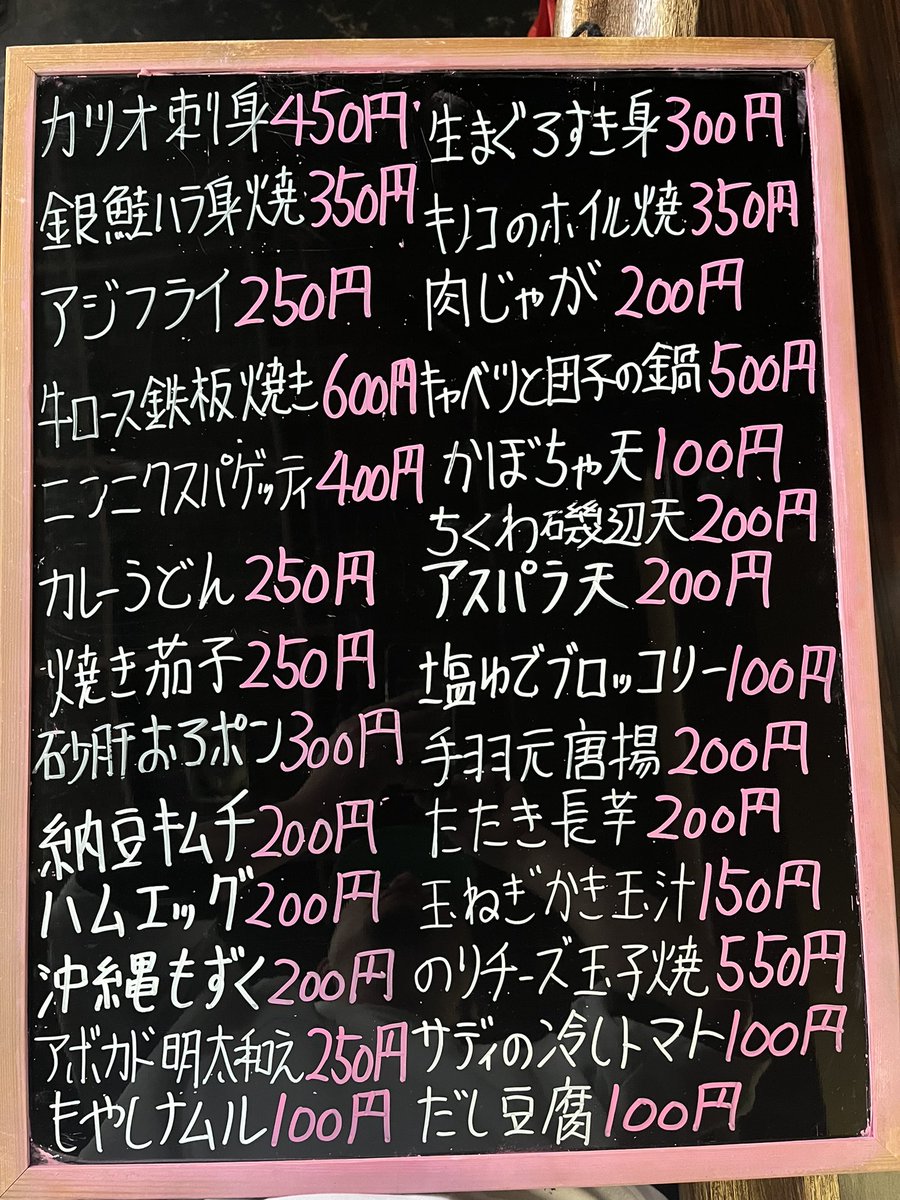 カツオ刺身450円
銀鮭ハラ身焼350円
アジフライ250円
牛ロース鉄板焼き600円
ニンニクスパゲッティ400円
カレーうどん250円
焼き茄子250円
砂肝おろポン300円
納豆キムチ200円
ハムエッグ200円
沖縄もずく200円
アボカド明太和え250円
もやしナムル100円
生まぐろすき身300円
キノコのホイル焼350円
肉じゃが200円
キャベツと団子の鍋500円
かぼちゃ天100円
ちくわ磯辺天200円
アスパラ天200円
塩ゆでブロッコリー100円
手羽元唐揚200円
たたき長芋200円
玉ねぎかき玉汁150円
のりチーズ玉子焼550円
サディの冷しトマト100円
だし豆腐100円